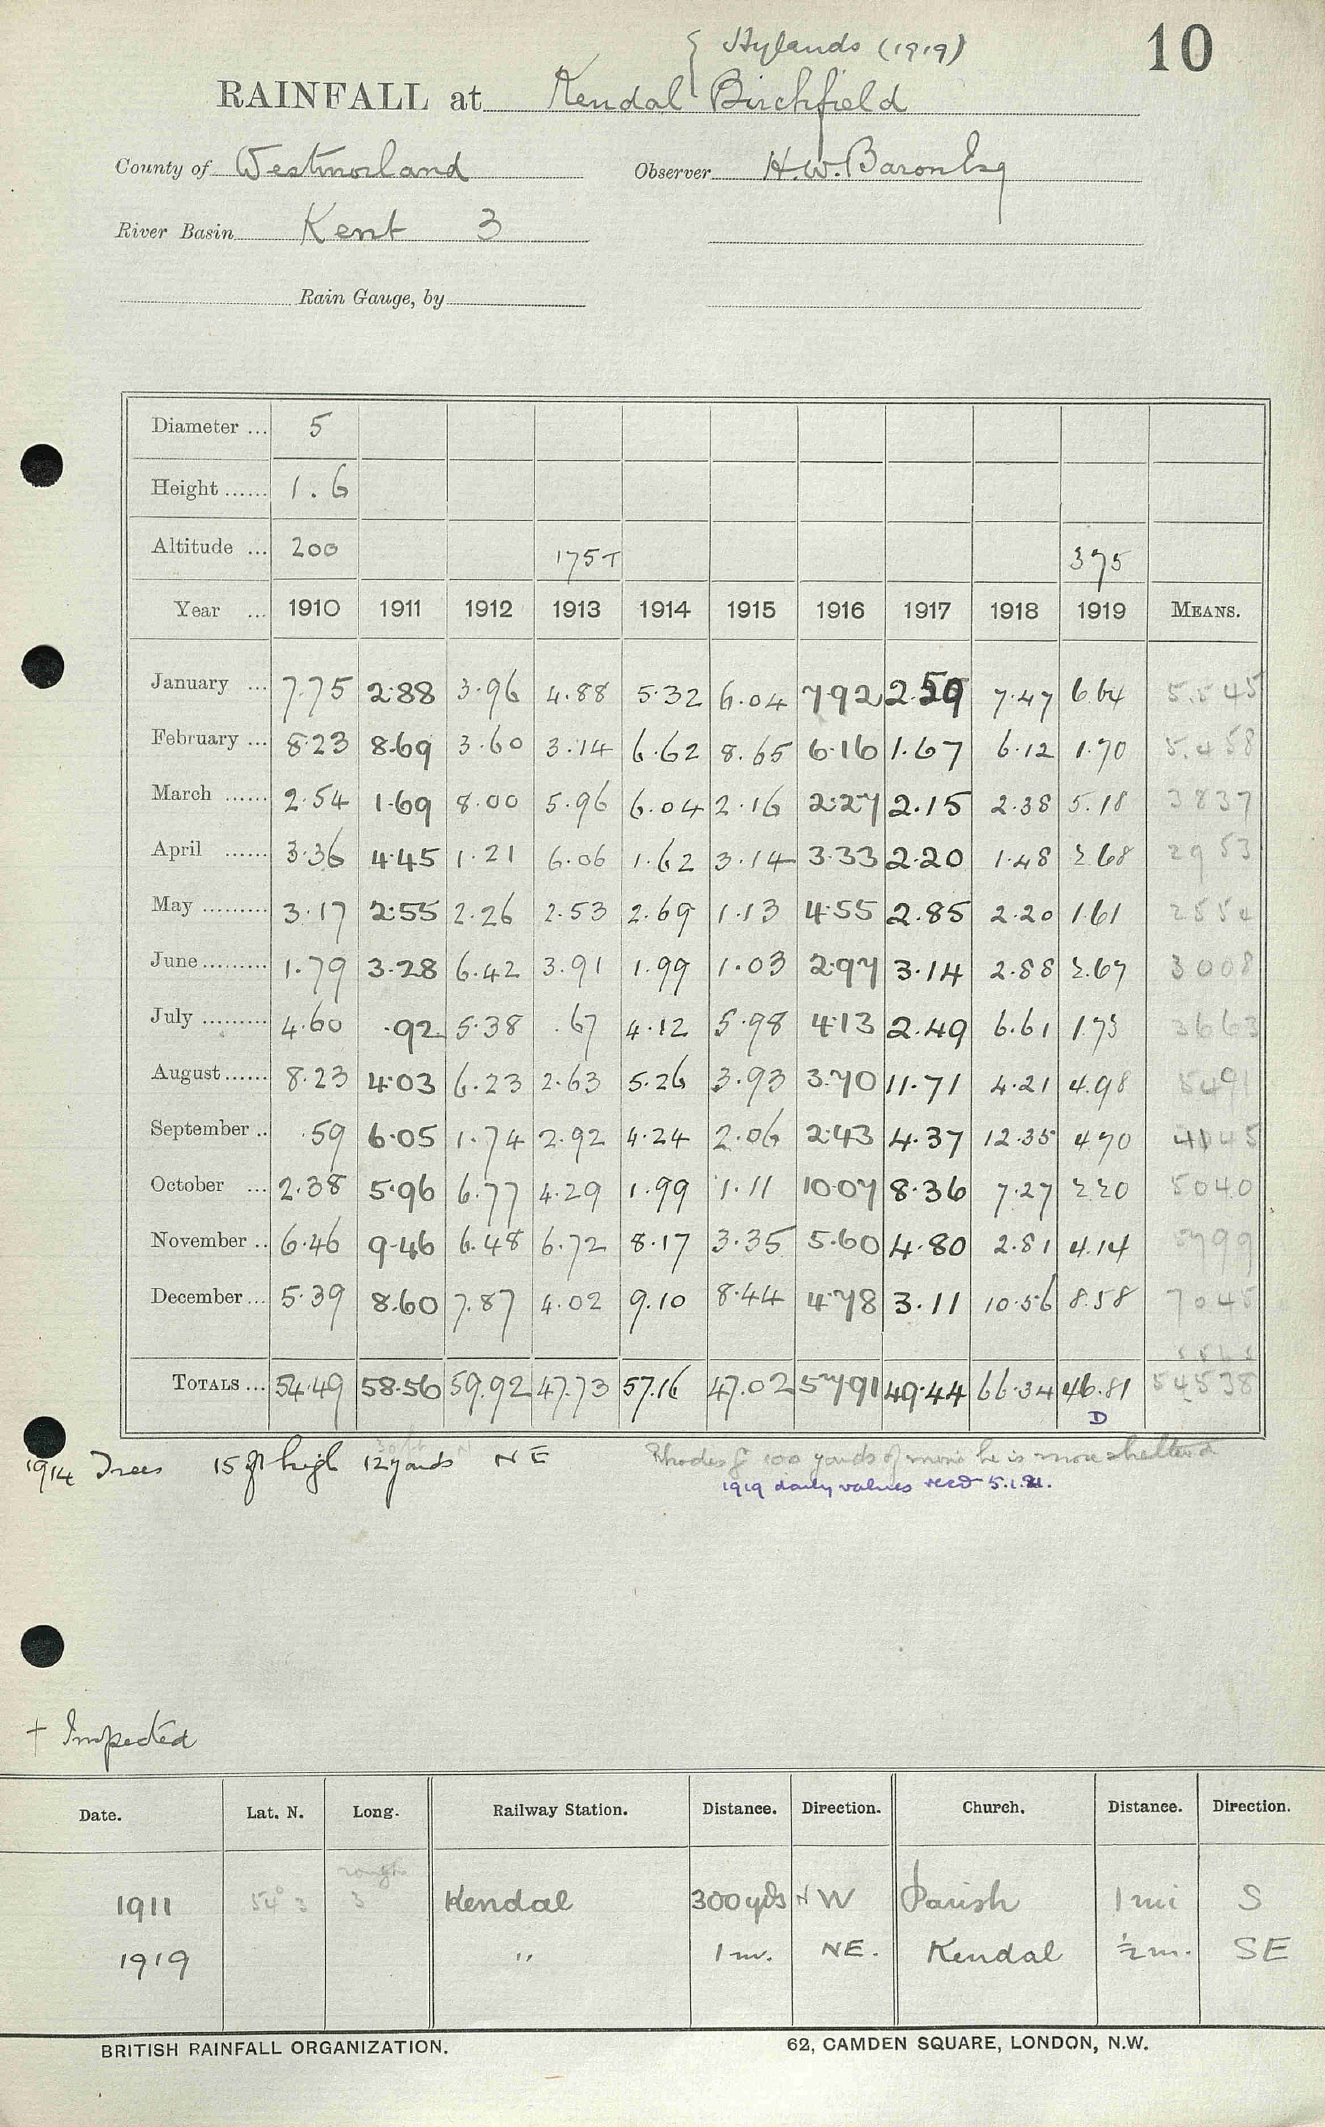 { Hylands (1919)
10
RAINFALL at Kendal Birchfield
County of Westmorland Observer H.W. Baron Esq
River Basin Kent 3
Rain Gauge, by
Diameter ... 5
Height ...... 1.6
Altitude ... 200 175T 375
Year ... 1910 1911 1912 1913 1914 1915 1916 1917 1918 1919 MEANS.
January ... 7.75 2.88 3.96 4.88 5.32 6.04 7.92 2.59 7.47 6.64 5.545
February ... 8.23 8.69 3.60 3.14 6.62 8.65 6.16 1.67 6.12 1.70 5.458
March ...... 2.54 1.69 8.00 5.96 6.04 2.16 2.27 2.15 2.38 5.18 3837
April ...... 3.36 4.45 1.21 6.06 1.62 3.14 3.33 2.20 1.48 2.68 2953
May ......... 3.17 2.55 2.26 2.53 2.69 1.13 4.55 2.85 2.20 1.61 2554
June......... 1.79 3.28 6.42 3.91 1.99 1.03 2.97 3.14 2.88 2.67 3008
July ......... 4.60 .92 5.38 .67 4.12 5.98 4.13 2.49 6.61 1.73 3663
August...... 8.23 4.03 6.23 2.63 5.26 3.93 3.70 11.71 4.21 4.98 5491
September .. .59 6.05 1.74 2.92 4.24 2.06 2.43 4.37 12.35 4.70 4145
October ... 2.38 5.96 6.77 4.29 1.99 1.11 10.07 8.36 7.27 2.20 5040
November .. 6.46 9.46 6.48 6.72 8.17 3.35 5.60 4.80 2.81 4.14 5799
December... 5.39 8.60 7.87 4.02 9.10 8.44 4.78 3.11 10.56 8.58 7045
TOTALS ... 54.49 58.56 59.92 47.73 57.16 47.02 57.91 49.44 66.34 46.81 54538
D
1914 Trees 15 ft high 12 yards NE
Rhodes 100 yards of mine he is more sheltered
1919 daily values recd 5.1.21.
+ Inspected
Date. Lat. N. Long. Railway Station. Distance. Direction. Church. Distance. Direction.
rough
1911 54° 3 3 Kendal 300 yds NW Parish 1 mi S
1919 " 1 m. NE. Kendal ½ m. SE
BRITISH RAINFALL ORGANIZATION. 62, CAMDEN SQUARE, LONDON, N.W.